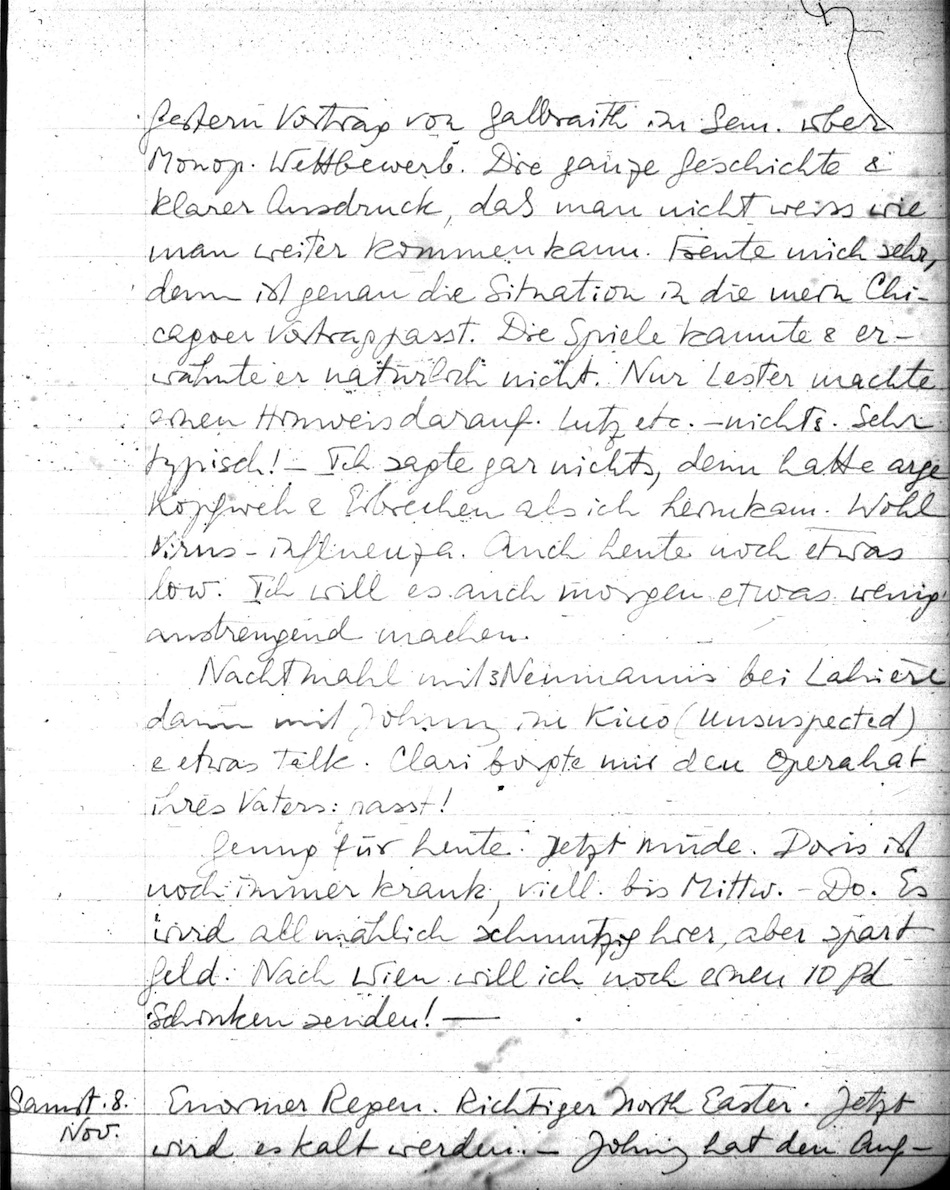 Gestern Vortrag von Galbraith im Sem. über
Monop. Wettbewerb. Die ganze Geschichte &
klarer Ausdruck, daß man nicht weiss wie
man weiter kommen kann. Freute mich sehr,
denn ist genau die Situation in die mein Chi-
cagoer Vortrag passt. Die Spiele kannte & er-
wähnte er natürlich nicht. Nur Lester machte
einen Hinweis darauf. Lutz etc. – nichts. Sehr
typisch! – Ich sagte gar nichts, denn hatte arge
Kopfweh & Erbrechen als ich heimkam. Wohl
Virus-influenza. Auch heute noch etwas
low. Ich will es auch morgen etwas wenig
anstrengend machen.
Nachtmahl mit Neumanns bei Lahiere
dann mit Johnny im Kino (Unsuspected)
& etwas talk. Clari borgte mir den Operahat
ihres Vaters: passt!
Genug für heute. Jetzt müde. Doris ist
noch immer krank, viell. bis Mittw. – Do. Es
wird allmählich schmutzig hier, aber spart
Geld. Nach Wien will ich noch einen 10 Pd
Schinken senden! —
Samst. 8. Enormer Regen. Richtiger North Easter. Jetzt
Nov. wird es kalt werden. – Johnny hat den Auf-